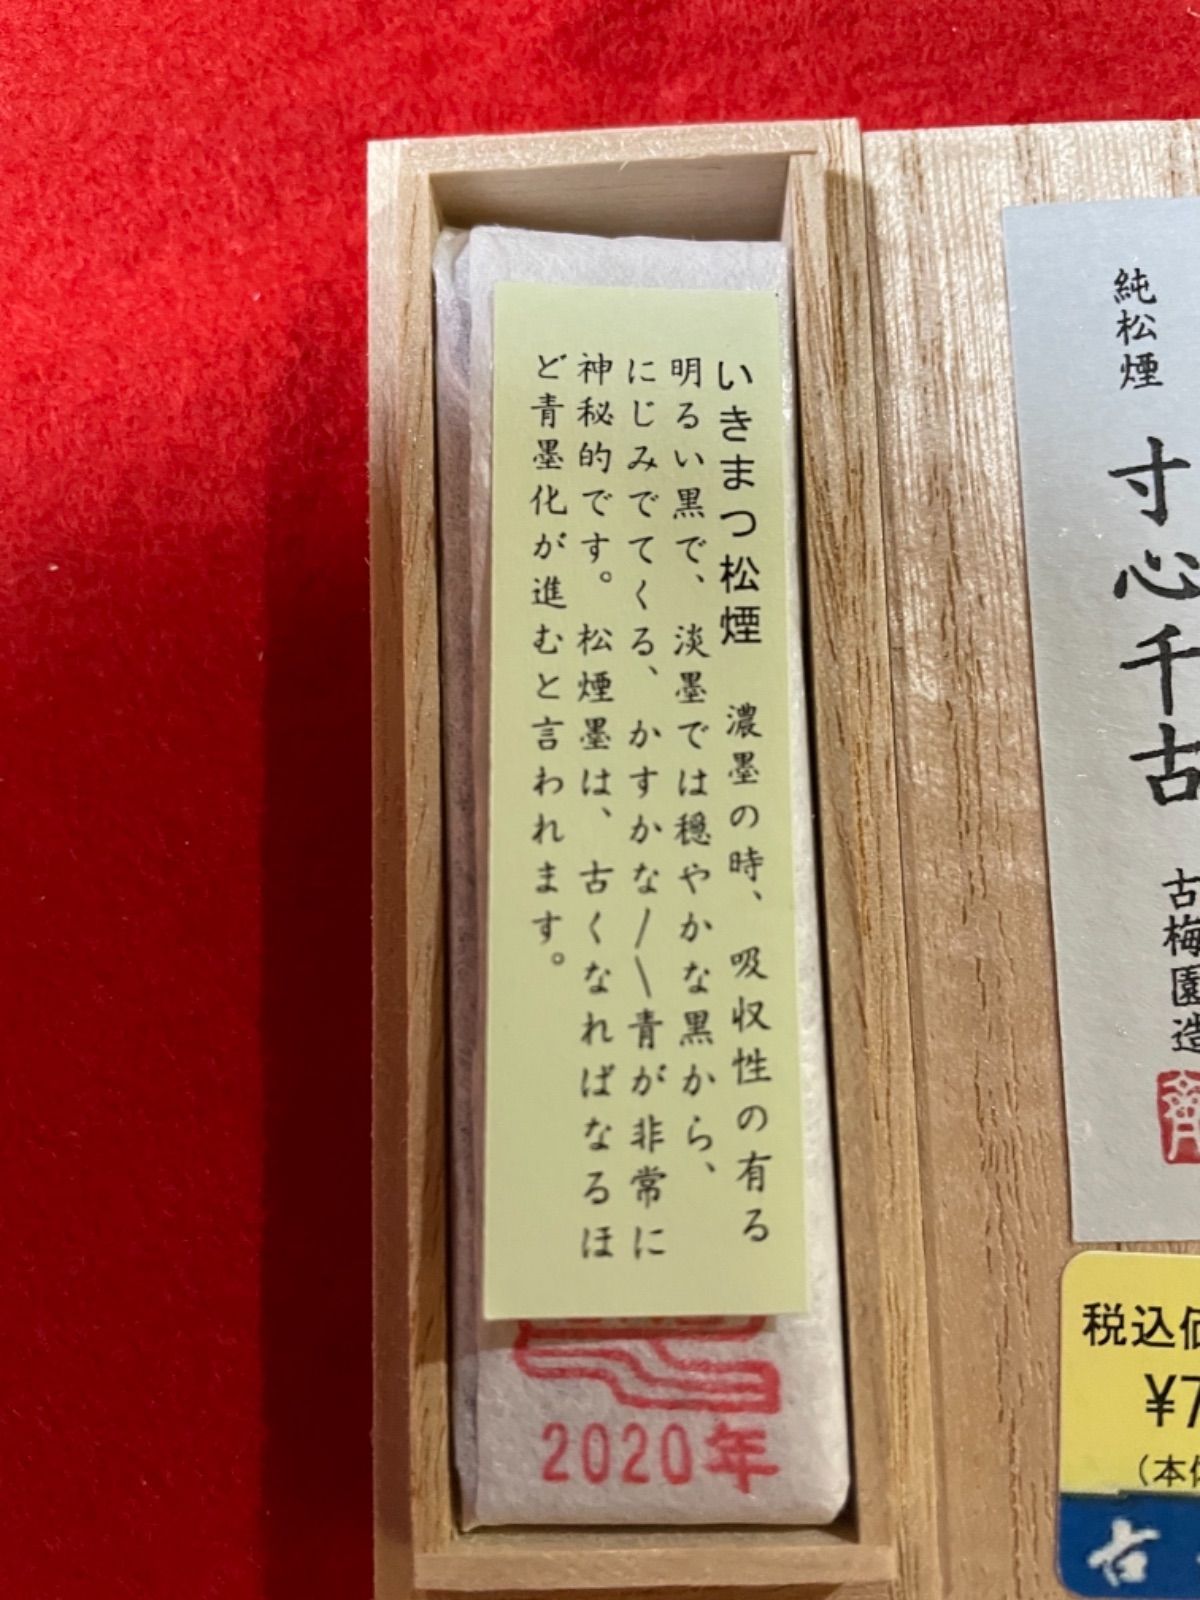 純松煙
寸心千古
古梅園造
いきまつ松煙　濃墨の時、吸収性の有る
明るい黒で、淡墨では穏やかな黒から、
にじみでてくる、かすかな／＼青が非常に
神秘的です。松煙墨は、古くなればなるほ
ど青墨化が進むと言われます。
2020年
税込価
¥7
（本体
古